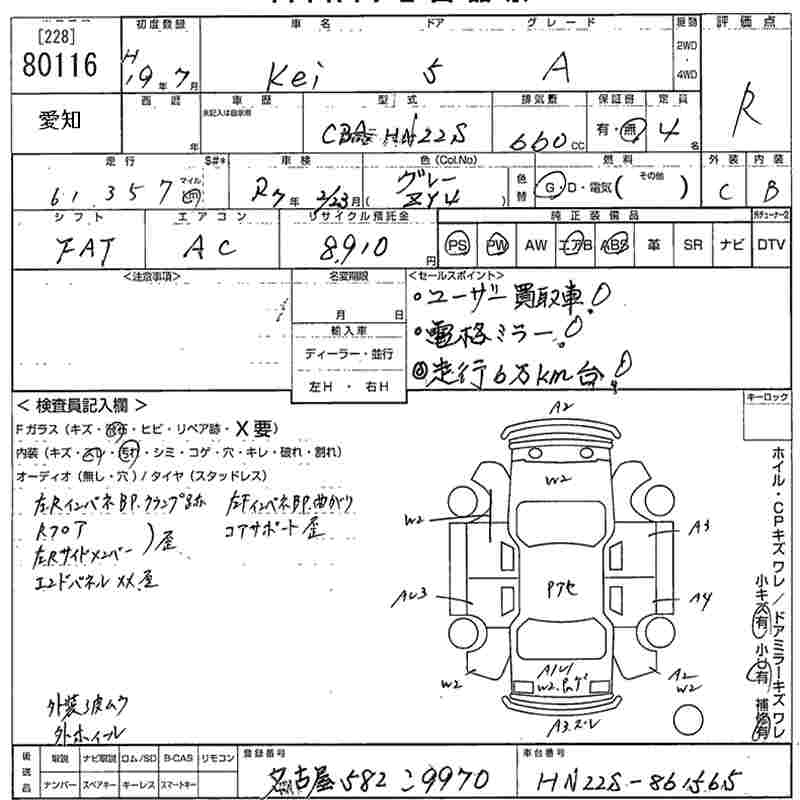 [228]
80116
愛知
初度登録
H19年7月
車名
Kei
ドア
5
グレード
A
駆動
2WD
4WD
評価点
R
西暦
年
車歴
未記入は自家用
型式
CBA HN22S
排気量
660cc
保証書
有・無
定員
4名
走行
61,357
マイル
S#*
車検
R7年2/23月
色(Col.No)
グレー
ZY4
色替
燃料
G・D・電気(その他)
外装
C
内装
B
シフト
FAT
エアコン
AC
リサイクル預託金
8,910円
純正装備品
PS PW AW エアB ABS 革 SR ナビ
DTV
<注意事項>
名変期限
月 日
輸入車
ディーラー・並行
左H・右H
<セールスポイント>
・ユーザー買取車!
・電格ミラー!
◎走行6万km台!
<検査員記入欄>
キーロック
Fガラス(キズ・飛石・ヒビ・リペア跡・X要)
内装(キズ・スレ・汚れ・シミ・コゲ・穴・キレ・破れ・割れ)
オーディオ(無し・穴)/タイヤ(スタッドレス)
左RインパネBP.クランプ跡
左FインパネBP.曲がり
Rフロア
コアサポート歪
左Rサイドメンバー 歪
エンドパネルXX.歪
外装3皮ムケ
外ホイール
A2
W2
W2
A3
AU3
Pアセ
A4
W2
AU1
W2.
A2
W2
A3.ズレ
ホイル・CPキズワレ/ドアミラーキズワレ
小キズ有 小U有 補修有
後送品
取説 ナビ取説 ロム/SD B-CAS リモコン
ナンバー スペアキー キーレス スマートキー
登録番号
名古屋582こ9970
車台番号
HN22S-861565